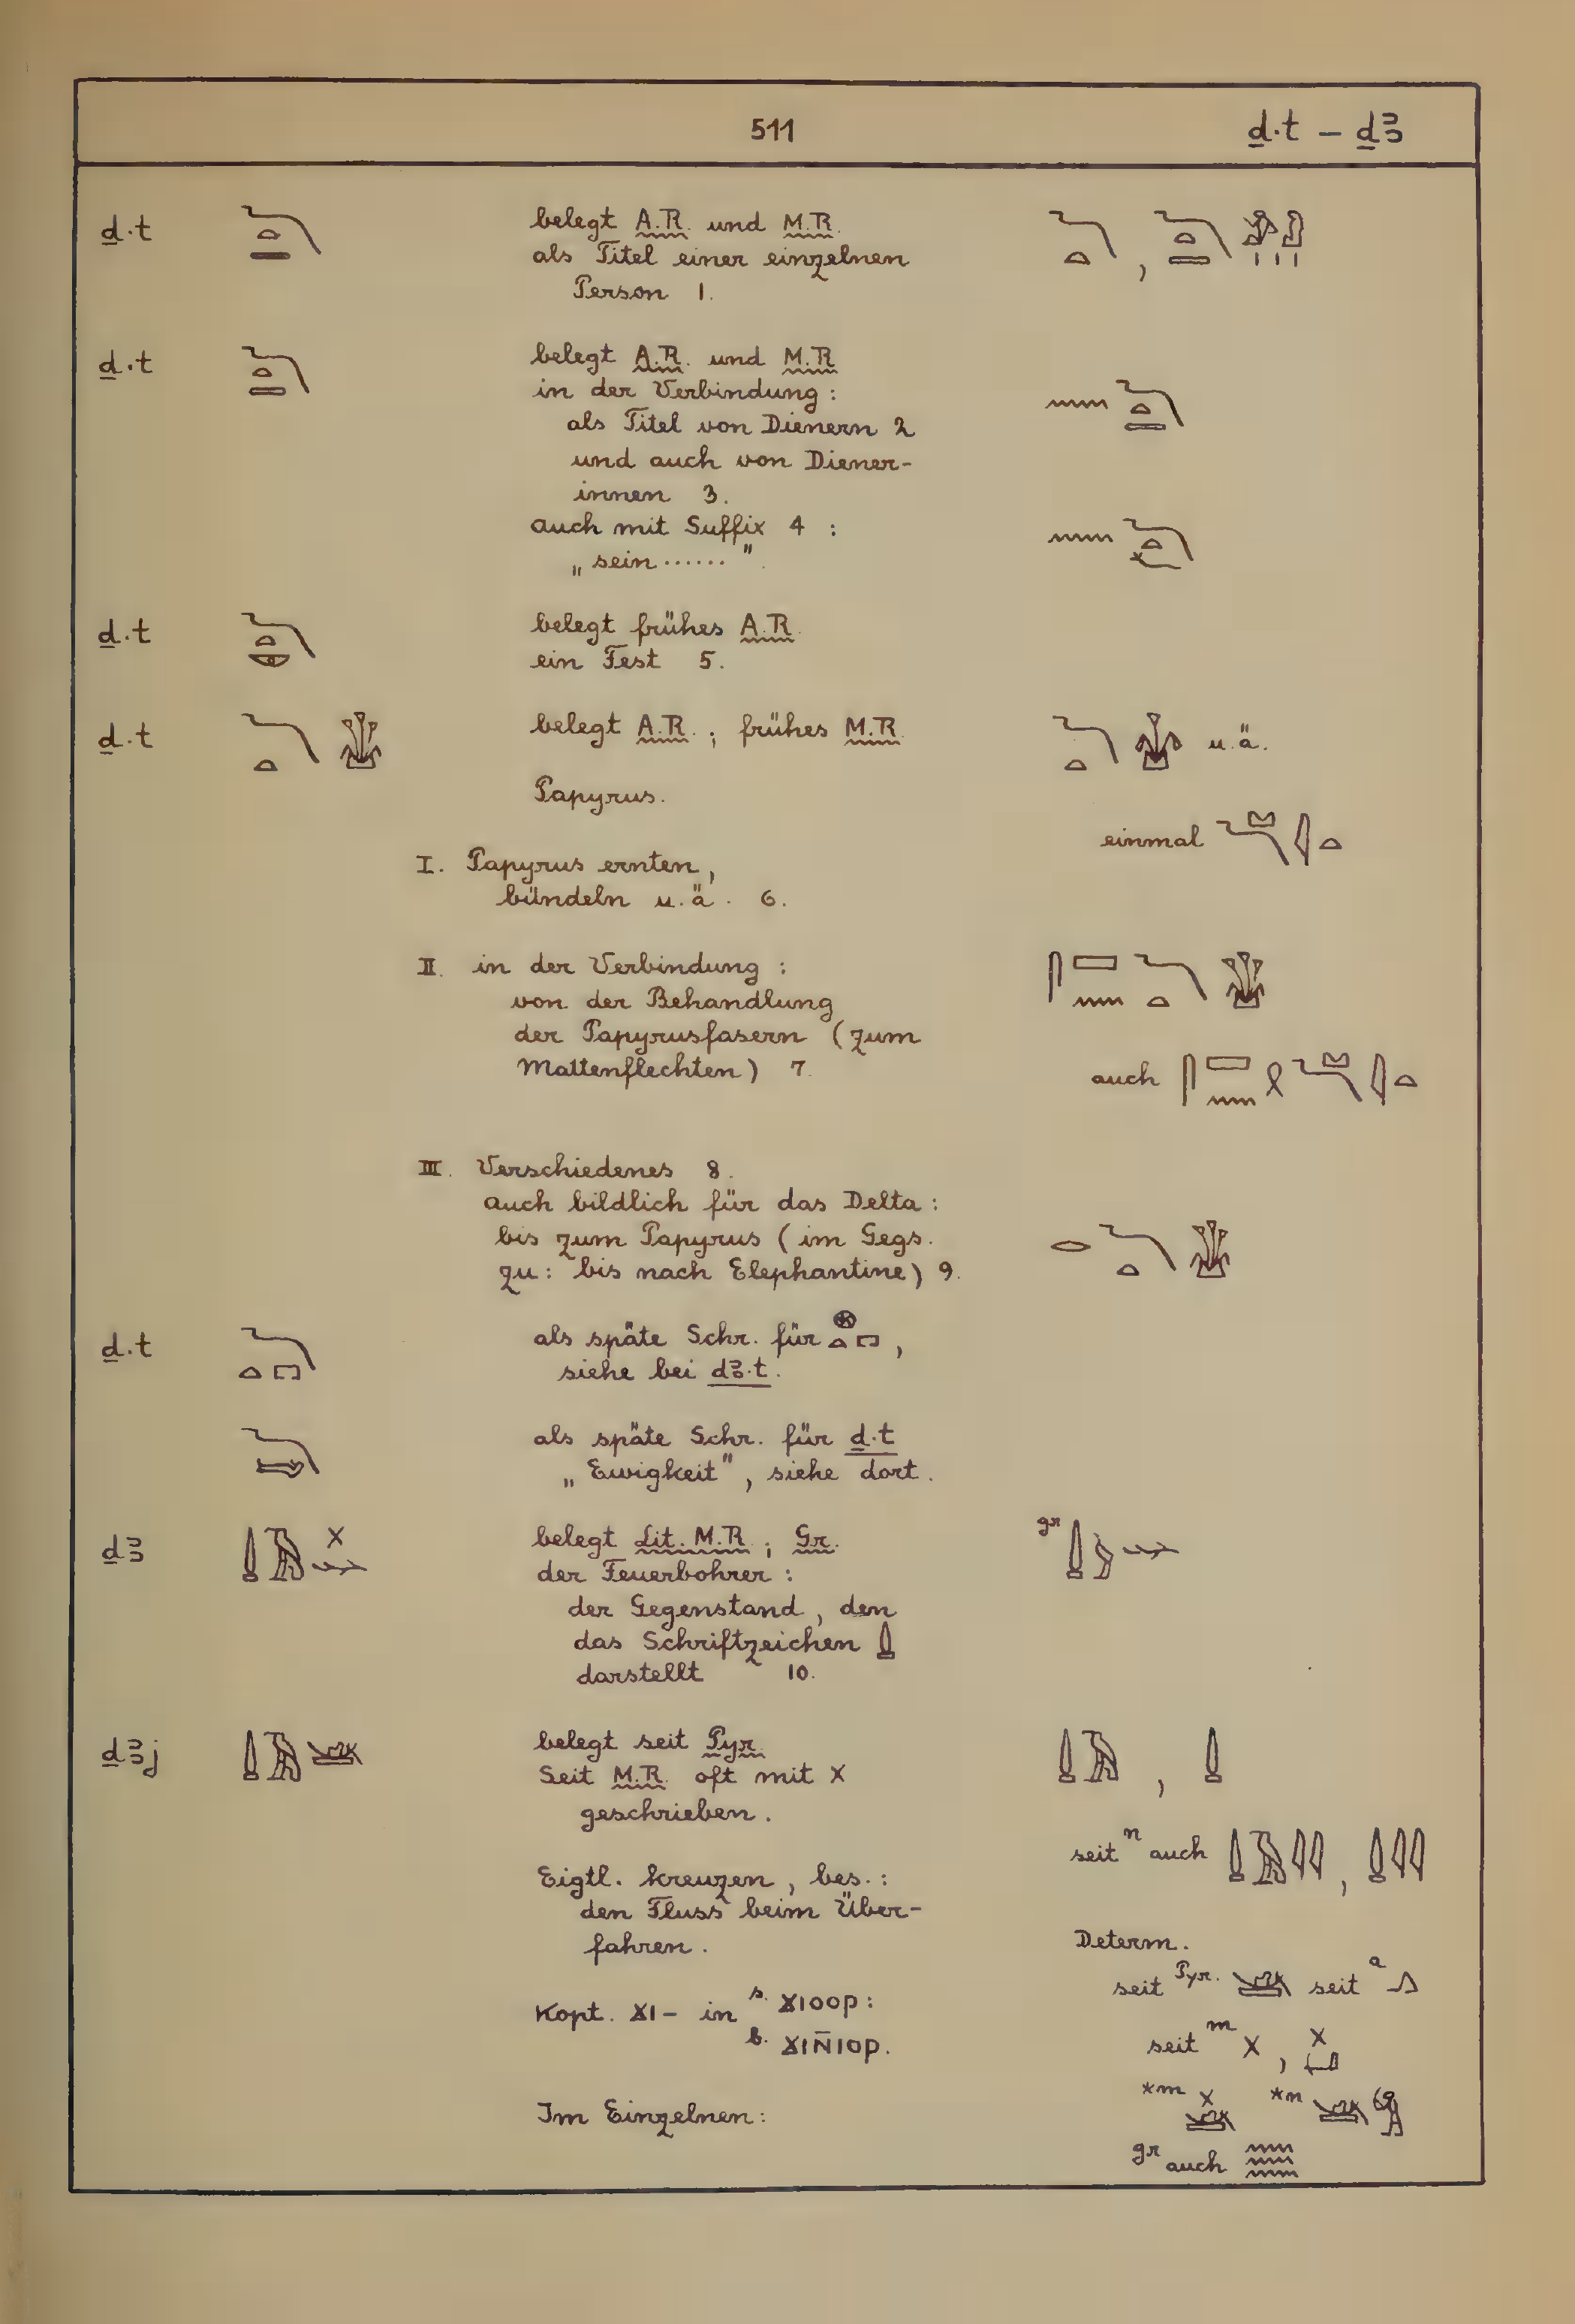 511
ḏ.t – ḏꜣ
ḏ.t
belegt A.R. und M.R.
als Titel einer einzelnen
Person 1.
ḏ.t
belegt A.R. und M.R.
in der Verbindung :
als Titel von Dienern 2
und auch von Diener-
innen 3.
auch mit Suffix 4 :
„ sein ...... ".
ḏ.t
belegt frühes A.R.
ein Fest 5.
ḏ.t
belegt A.R. ; frühes M.R.
u.ä.
Papyrus.
einmal
I. Papyrus ernten,
bündeln u.ä. 6.
II. in der Verbindung :
von der Behandlung
der Papyrusfasern (zum
Mattenflechten) 7.
auch
III. Verschiedenes 8.
auch bildlich für das Delta :
bis zum Papyrus (im Gegs.
zu : bis nach Elephantine) 9.
ḏ.t
als späte Schr. für ,
siehe bei dꜣ.t.
als späte Schr. für ḏ.t
„ Ewigkeit", siehe dort.
ḏꜣ
belegt Lit. M.R. ; Gr.
gr
der Feuerbohrer :
der Gegenstand, den
das Schriftzeichen
darstellt 10.
ḏꜣj
belegt seit Pyr.
,
Seit M.R. oft mit X
geschrieben.
seit n auch ,
Eigtl. kreuzen, bes. :
den Fluss beim Über-
fahren.
Determ.
seit Pyr. seit a
Kopt. ϪI- in s. ϪIOOP :
b. ϪIN̄IOP.
seit m X ,
*m *n
Im Einzelnen :
gr auch